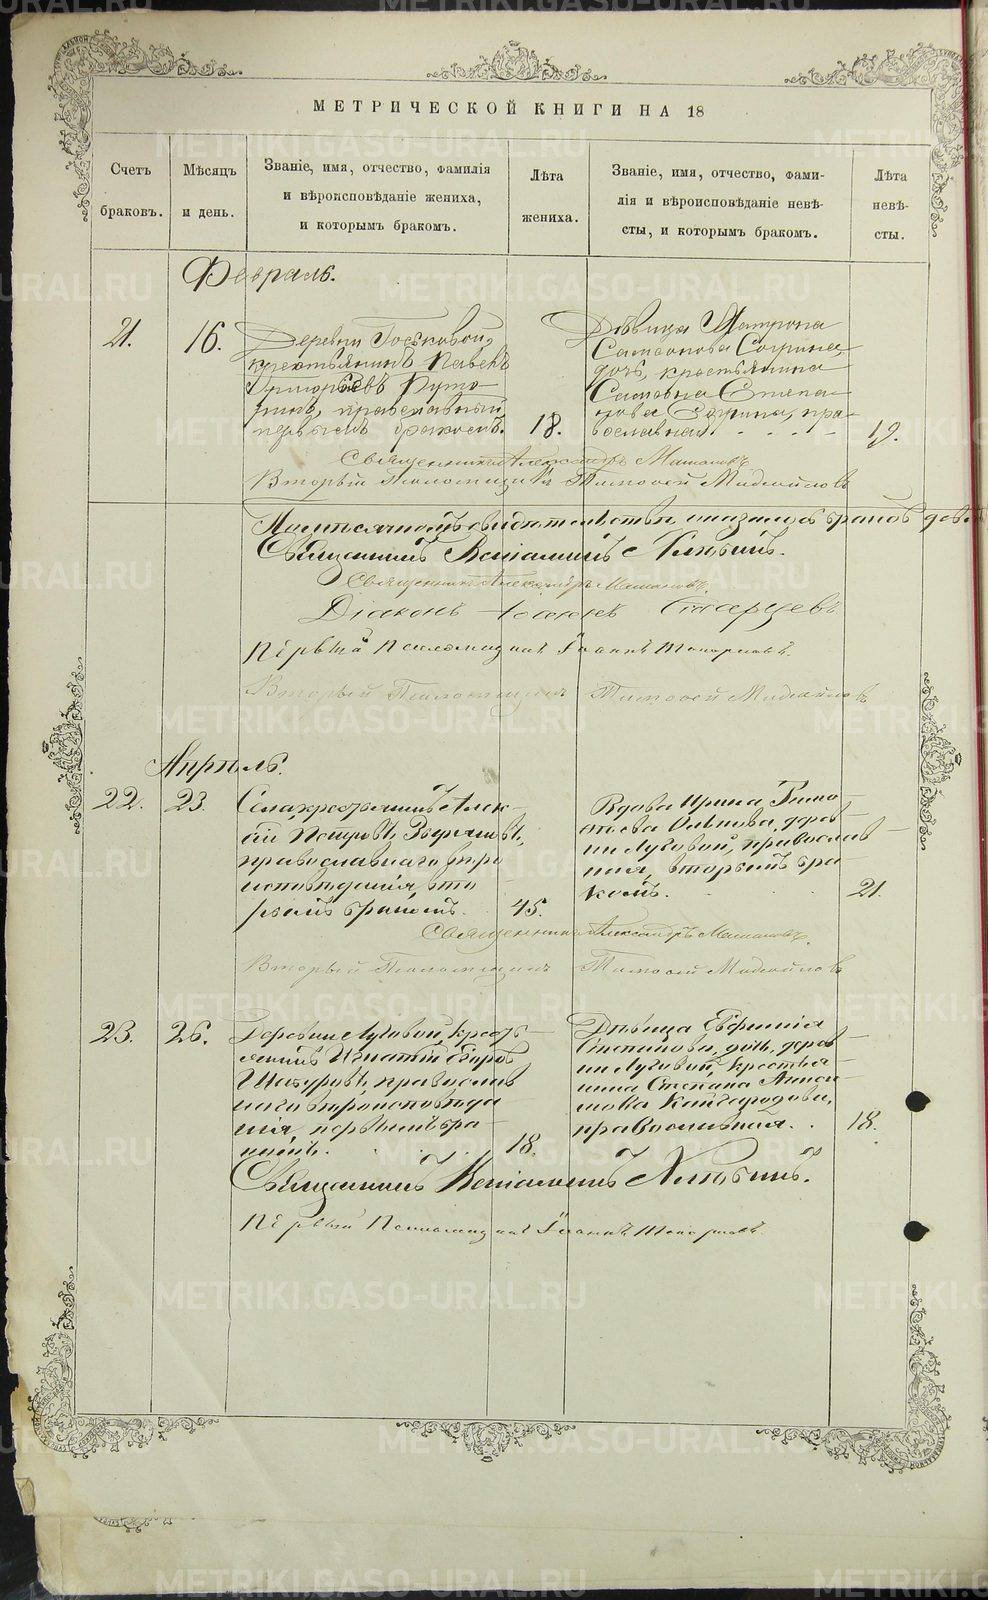 МЕТРИЧЕСКОЙ КНИГИ НА 18
Счетъ браковъ.
Мѣсяцъ и день.
Званіе, имя, отчество, фамилія
и вѣроисповѣданіе жениха,
и которымъ бракомъ.
Лѣта жениха.
Званіе, имя, отчество, фами-
лія и вѣроисповѣданіе невѣ-
сты, и которымъ бракомъ.
Лѣта невѣ-
сты.
Февраль.
21.
16.
Деревни
крестьянинъ Павелъ
Григорьевъ
православный,
первымъ бракомъ.
18.
Дѣвица Матрона
Самсонова Согрина,
дочь крестьянина
Самсона Степа-
нова Согрина, пра-
вославная
19.
Священникъ Александръ
Вторый Псаломщикъ Тимофей Михайловъ
По мѣсячному свидѣтельству оказалось браковъ два.
Священникъ Веніаминъ
Священникъ Александръ
Діаконъ Старцевъ
Первый Псаломщикъ Іоаннъ
Вторый Псаломщикъ Тимофей Михайловъ
Апрѣль.
22.
23.
Села крестьянинъ Алек-
ѣй Петровъ
православнаго вѣро
исповѣданія, вто
рымъ бракомъ.
45.
Вдова Ирина Тимо-
ѳеева дерев-
ни Луговой, православ-
ная, вторымъ бра
комъ.
21.
Священникъ Александръ
Вторый Псаломщикъ Тимофей Михайловъ
23.
26.
Деревни Луговой, кресть-
янинъ Игнатій Егоровъ
православ
наго вѣроисповѣда
нія, первымъ бра-
комъ.
18.
Дѣвица Евфимія
Степанова, дочь дерев-
ни Луговой, крестья-
нина Степана
Кайгородова,
православная.
18.
Священникъ Веніаминъ
Первый Псаломщикъ Іоаннъ
METRIKI.GASO-URAL.RU